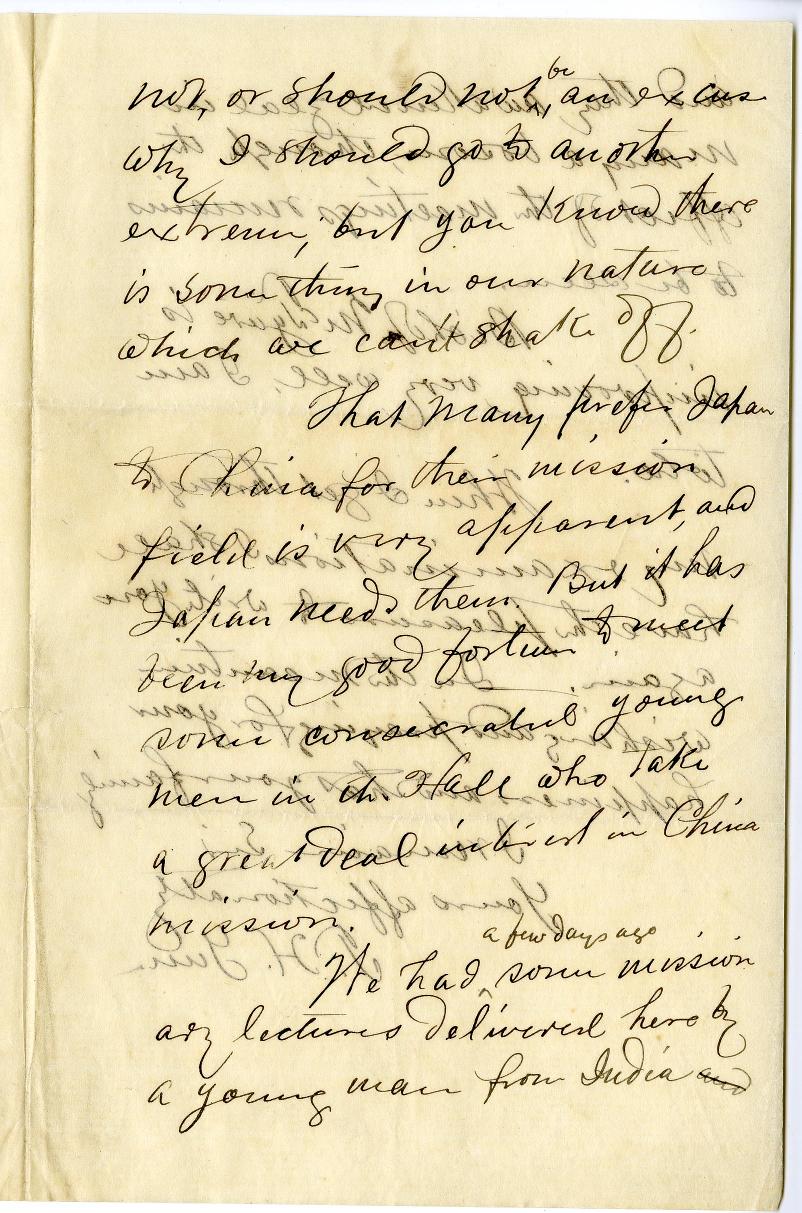 not, or should not, be an excuse
why I should go to another
extreme, but you know there
is something in our nature
which we can't shake off.
That many prefer Japan
to China for their mission
field is very apparent, and
Japan needs them. But it has
been my good fortune to meet
some consecrated young
men in th. Hall who take
a great deal interest in China
mission.
a few days ago
We had some mission
ary lectures delivered here by
a young man from India and